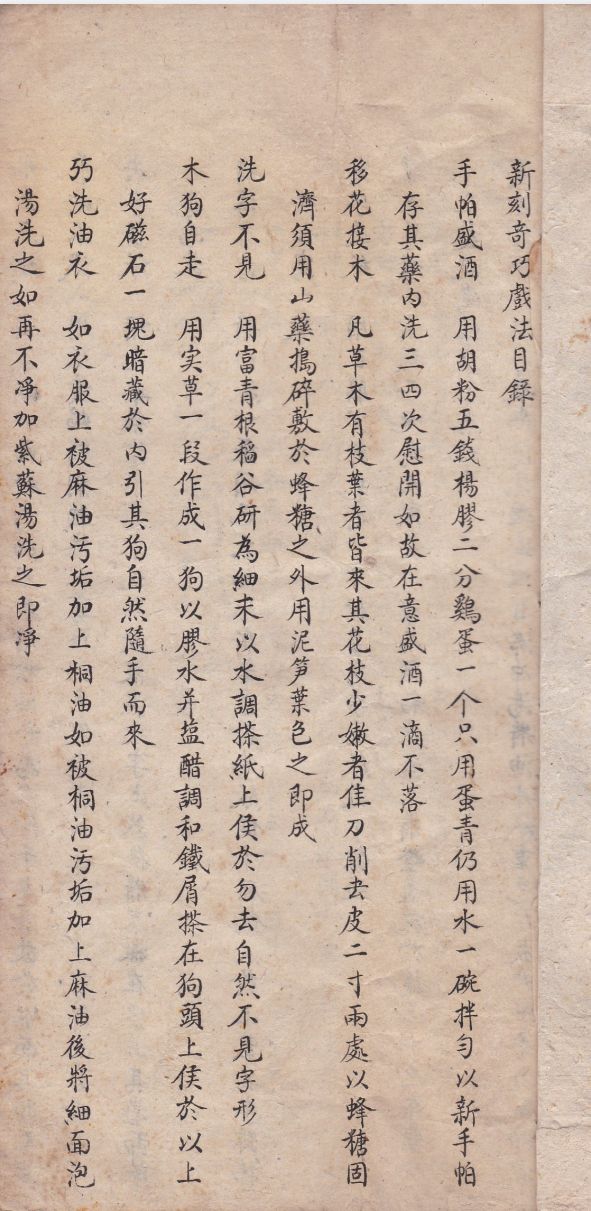 新刻奇巧戲法目錄
手帕盛酒　用胡粉五錢楊膠二分鷄蛋一个只用蛋青仍用水一碗拌勻以新手帕
存其藥内洗三四次慰開如故在意盛酒一滴不落
移花接木　凡草木有枝葉者皆來其花枝少嫩者佳刀削去皮二寸兩處以蜂糖固
濟須用山藥搗碎敷於蜂糖之外用泥笋葉色之即成
洗字不見　用富青根稻谷研為細末以水調搽紙上侯於勿去自然不見字形
木狗自走　用实草一段作成一狗以膠水并塩醋調和鐵屑搽在狗頭上侯於以上
好磁石一塊暗藏於内引其狗自然隨手而來
巧洗油衣　如衣服上被麻油汚垢加上桐油如被桐油汚垢加上麻油後將細面泡
湯洗之如再不净加紫蘇湯洗之即净